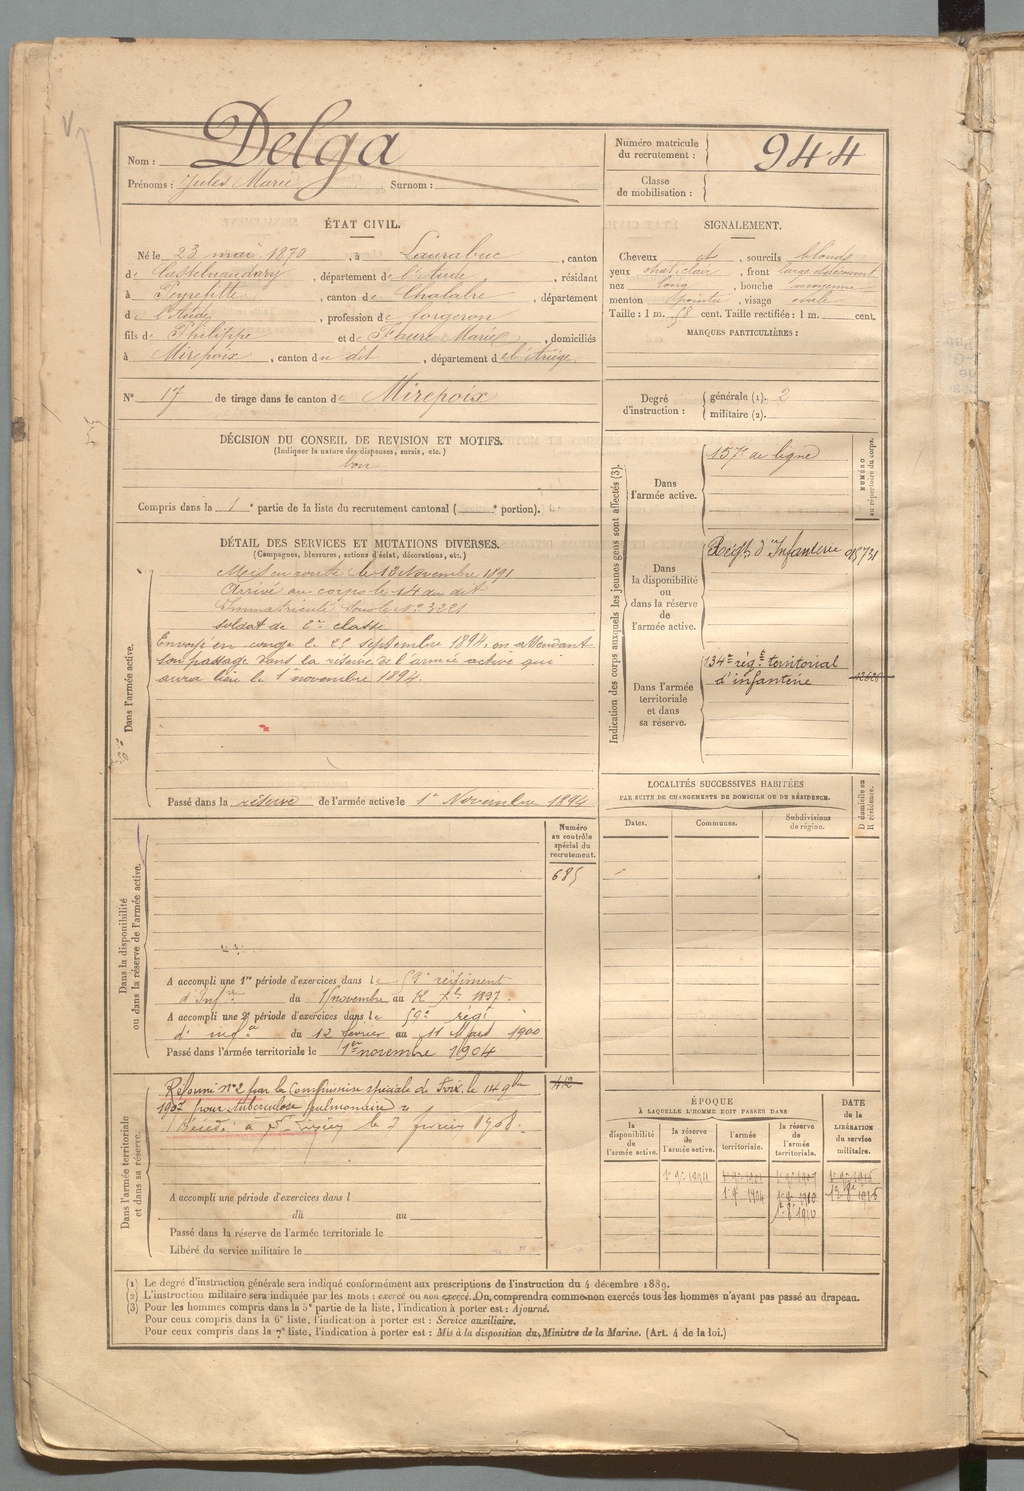 Nom : Delga
Prénoms : Jules Marie Surnom :
Numéro matricule du recrutement : 944
Classe de mobilisation :
ÉTAT CIVIL.
Né le 23 mai 1870, à Laurabuc, canton
de Castelnaudary, département de l'Aude, résidant
à Peyrefitte, canton de Chalabre, département
de l'Aude, profession de forgeron
fils de Philippe et de Faure Marie, domiciliés
à Mirepoix, canton du dit, département de l'Ariège.
N° 17 de tirage dans le canton de Mirepoix
SIGNALEMENT.
Cheveux et, sourcils blonds
yeux chat. clair, front large et découvert
nez long, bouche moyenne
menton pointu, visage ovale
Taille : 1 m. 58 cent. Taille rectifiée : 1 m. cent.
MARQUES PARTICULIÈRES :
Degré d'instruction : générale (1). 2
militaire (2).
DÉCISION DU CONSEIL DE REVISION ET MOTIFS.
(Indiquer la nature des dispenses, sursis, etc.)
bon
Compris dans la 1e partie de la liste du recrutement cantonal ( e portion).
DÉTAIL DES SERVICES ET MUTATIONS DIVERSES.
(Campagnes, blessures, actions d'éclat, décorations, etc.)
Dans l'armée active.
Mis en route le 13 Novembre 1891
Arrivé au corps le 14 du dit
Immatriculé sous le N° 3221
soldat de 2e classe
Envoyé en congé le 25 septembre 1894, en attendant
son passage dans la réserve de l'armée active qui
aura lieu le 1er novembre 1894.
Passé dans la réserve de l'armée active le 1er Novembre 1894
Indication des corps auxquels les jeunes gens sont affectés (3).
NUMÉRO au répertoire du corps.
Dans l'armée active.
157e de ligne
Dans la disponibilité ou dans la réserve de l'armée active.
Régt d'Infanterie
Dans l'armée territoriale et dans sa réserve.
134e régt territorial
d'infanterie
LOCALITÉS SUCCESSIVES HABITÉES
PAR SUITE DE CHANGEMENTS DE DOMICILE OU DE RÉSIDENCE.
Dates. Communes. Subdivisions de région. D domicile ou R résidence.
Dans la disponibilité ou dans la réserve de l'armée active.
Numéro au contrôle spécial du recrutement.
685
A accompli une 1re période d'exercices dans le 59e régiment
d'Infrie du 15 novembre au 12 Xbre 1897.
A accompli une 2e période d'exercices dans le 59e régt
d'infie du 12 février au 11 Mars 1900
Passé dans l'armée territoriale le 1er novembre 1904
Dans l'armée territoriale et dans sa réserve.
412
Réformé n° 2 par la Commission spéciale de Foix le 14 9bre
1907 pour tuberculose pulmonaire
Décédé à le 3 février 1908.
A accompli une période d'exercices dans l
du au
Passé dans la réserve de l'armée territoriale le
Libéré du service militaire le
ÉPOQUE
À LAQUELLE L'HOMME DOIT PASSER DANS
la disponibilité de l'armée active.
la réserve de l'armée active.
l'armée territoriale.
la réserve de l'armée territoriale.
DATE de la LIBÉRATION du service militaire.
(1) Le degré d'instruction générale sera indiqué conformément aux prescriptions de l'instruction du 4 décembre 1889.
(2) L'instruction militaire sera indiquée par les mots : exercé ou non exercé. On comprendra comme non exercés tous les hommes n'ayant pas passé au drapeau.
(3) Pour les hommes compris dans la 5e partie de la liste, l'indication à porter est : Ajourné.
Pour ceux compris dans la 6e liste, l'indication à porter est : Service auxiliaire.
Pour ceux compris dans la 7e liste, l'indication à porter est : Mis à la disposition du Ministre de la Marine. (Art. 4 de la loi.)